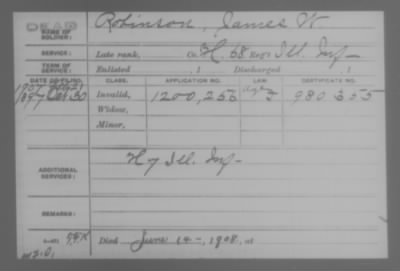 DEAD
NAME OF SOLDIER: Robinson, James W.
SERVICE: Late rank, Co. H, 68 Reg't Ill. Inf
TERM OF SERVICE: Enlisted , 1 Discharged , 1
DATE OF FILING. CLASS. APPLICATION NO. LAW. CERTIFICATE NO.
1897 Oct 30 Invalid, 1200,256 980 355
Widow,
Minor,
ADDITIONAL SERVICES: H 7 Ill. Inf
REMARKS:
Died June 14, 1908, at